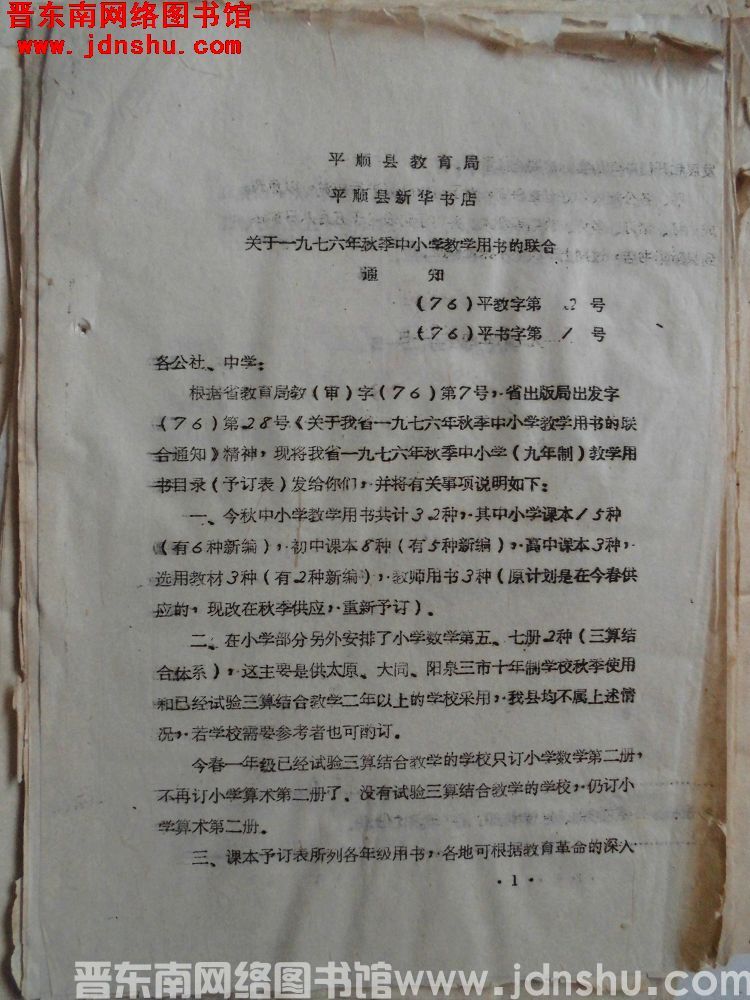 晋东南网络图书馆
www. jdnshu. com
平顺县教育局
平顺县新华书店
关于一九七六年秋季中小学教学用书的联合
通 知
(76)平教字第 2 号
(76)平书字第 1 号
各公社、中学:
根据省教育局教(审)字(76)第7号,省出版局出发字
(76)第28号《关于我省一九七六年秋季中小学教学用书的联
合通知》精神,现将我省一九七六年秋季中小学(九年制)教学用
书目录(予订表)发给你们,并将有关事项说明如下:
一、今秋中小学教学用书共计32种,其中小学课本15种
(有6种新编),初中课本8种(有5种新编),高中课本3种,
选用教材3种(有2种新编),教师用书3种(原计划是在今春供
应的,现改在秋季供应,重新予订)。
二、在小学部分另外安排了小学数学第五、七册2种(三算结
合体系),这主要是供太原、大同、阳泉三市十年制学校秋季使用
和已经试验三算结合教学二年以上的学校采用,我县均不属上述情
况,若学校需要参考者也可酌订。
今春一年级已经试验三算结合教学的学校只订小学数学第二册,
不再订小学算术第二册了。没有试验三算结合教学的学校,仍订小
学算术第二册。
三、课本予订表所列各年级用书,各地可根据教育革命的深入
·1·
晋东南网络图书馆www.jdnshu.com